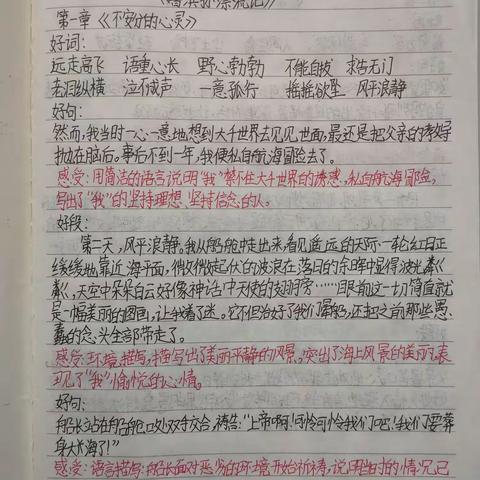 第一章《不安分的心灵》
好词：
远走高飞 语重心长 野心勃勃 不能自拔 求告无门
老泪纵横 泣不成声 一意孤行 摇摇欲坠 风平浪静
好句：
然而，我当时一心一意地想到大千世界去见见世面，最还是把父亲的教导
抛在脑后。事后不到一年，我便私自航海冒险去了。
感受：用简洁的语言说明"我"禁不住大千世界的诱惑，私自航海冒险，
写出了"我"的坚持理想、坚持信念的人。
好段：
第二天，风平浪静。我从船舱中走出来，看见遥远的天际一轮红日正
缓缓地靠近海平面，微微起伏的波浪在落日的余晖中显得波光粼
粼，天空中朵朵白云好像神话中天使的翅膀……眼前这一切简直就
是一幅美丽的图画，让我着迷。它不但治好了我们晕船，还把之前那些愚
蠢的念头全部带走了。
感受：环境描写，描写出了美丽平静的风景，突出了海上风景的美丽，表
现了"我"愉悦的心情。
好句：
船长站在船舱口处双手交合，祷告："上帝啊！可怜可怜我们吧！我们要葬
身大海了！"
感受：语言描写：船长面对恶劣的环境开始祈祷，说明当时的情况已